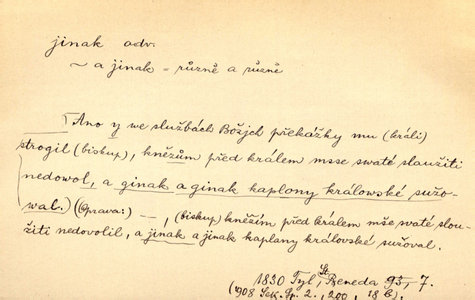 jinak adv.
~ a jinak = různě a různě
Ano y we službách Božjch překážky mu (králi)
strogil (biskup), kněžům před králem msse swaté slaužiti
nedowol, a ginak a ginak kaplony králowské sužo-
wal.) (Oprava:) —, (biskup) kněžím před králem mše swaté slou-
žiti nedovolil, a jinak a jinak kaplany královské sužoval.
1830 Tyl, St. Beneda 93, 7.
(1908 Seb. sp. 2, 200, 18 b.)